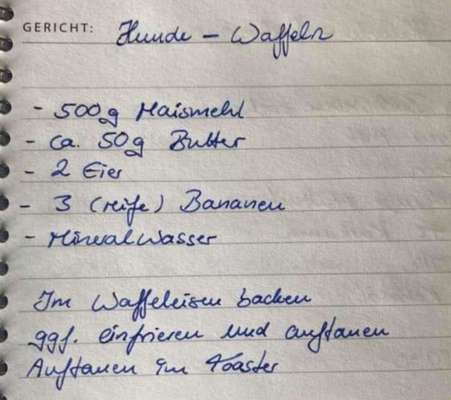 GERICHT: Hunde - Waffeln
- 500g Maismehl
- ca. 50g Butter
- 2 Eier
- 3 (reife) Bananen
- Mineralwasser
Im Waffeleisen backen
ggf. einfrieren und auftauen
Auftauen im Toaster